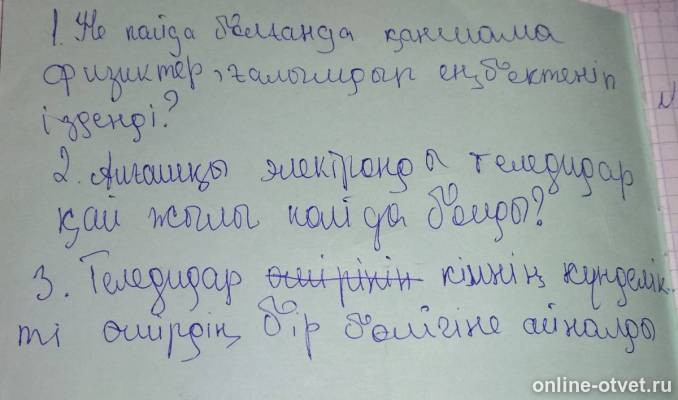 1. Не пайда болғанда қаншама
физиктер, ғалымдар еңбектеніп
ізденді?
2. Алғашқы электронды теледидар
қай жылы пайда болды?
3. Теледидар өмірінің кімнің күнделік
ті өмірдің бір бөлігіне айналды
online-otvet.ru